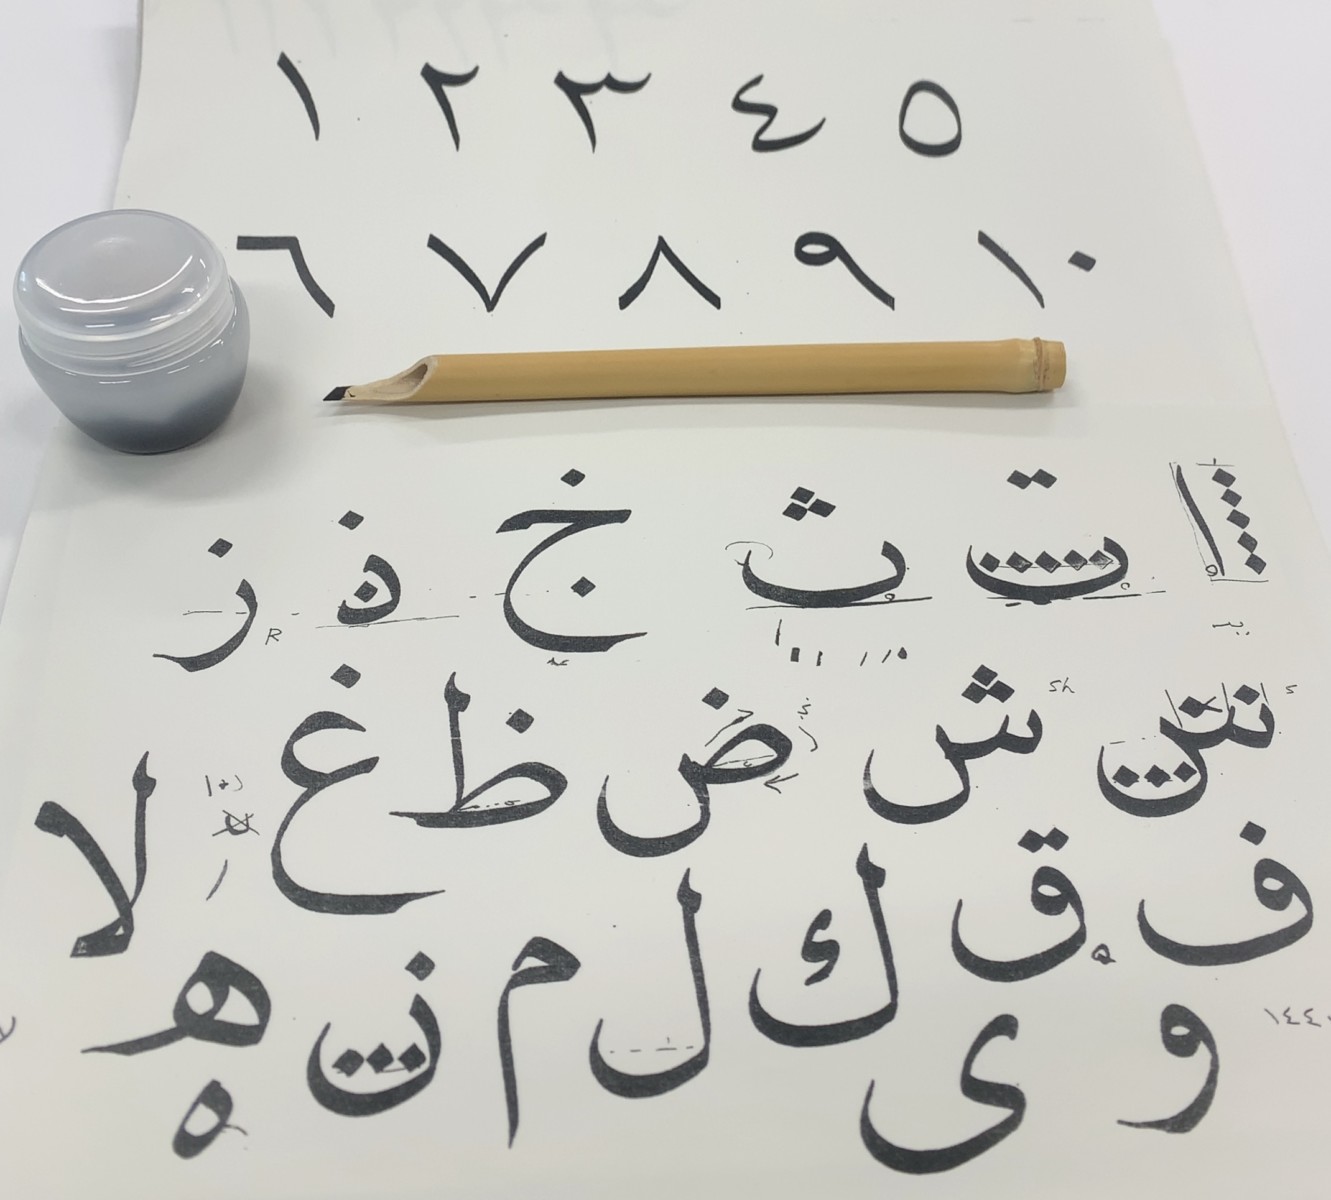 ١ ٢ ٣ ٤ ٥
٦ ٧ ٨ ٩ ١٠
ا ت ث خ ذ ز
R
ش ض ظ غ
sh
ف ق ك ل لا
و ى م ن ه
ه
١٤٤٠